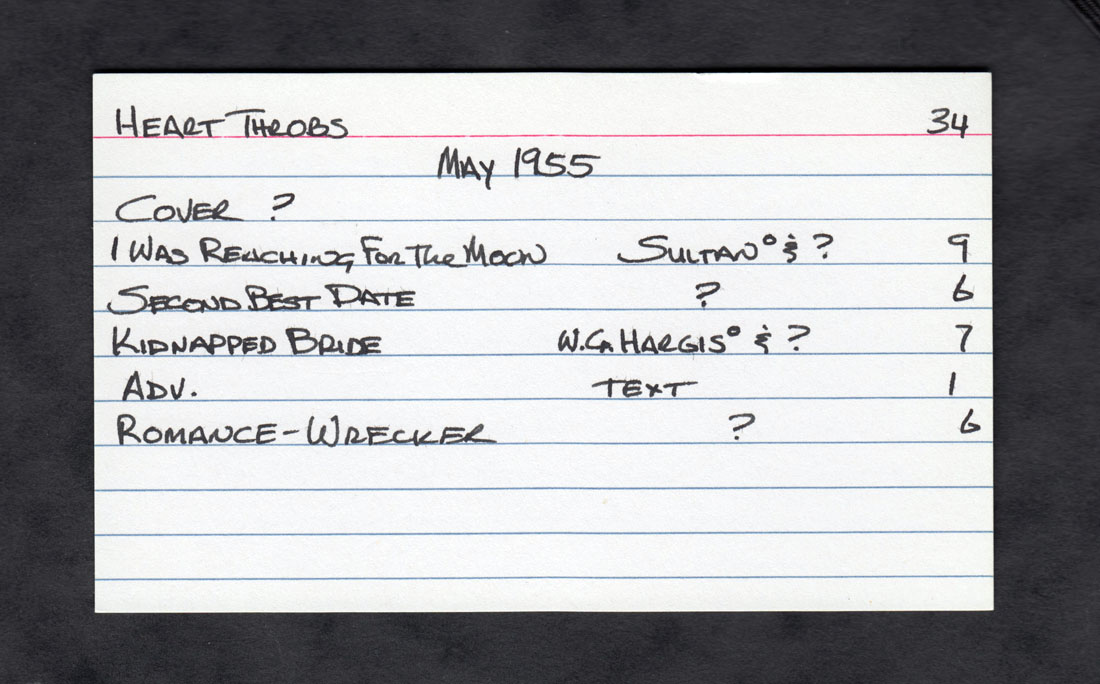 HEART THROBS 34
MAY 1955
COVER ?
I WAS REACHING FOR THE MOON SULTAN° & ? 9
SECOND BEST DATE ? 6
KIDNAPPED BRIDE W.G. HARGIS° & ? 7
ADV. TEXT 1
ROMANCE-WRECKER ? 6